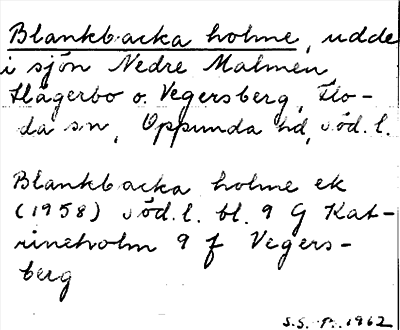 Blankbacka holme, udde
i sjön Nedre Malmen
Hagerbo o. Vegersberg, Flo-
da sn, Oppunda hd, Söd. l.
Blankbacka holme ek
(1958) Söd. l. bl. 9 G Kat-
rineholm 9 f Vegers-
berg
S.S. 1962